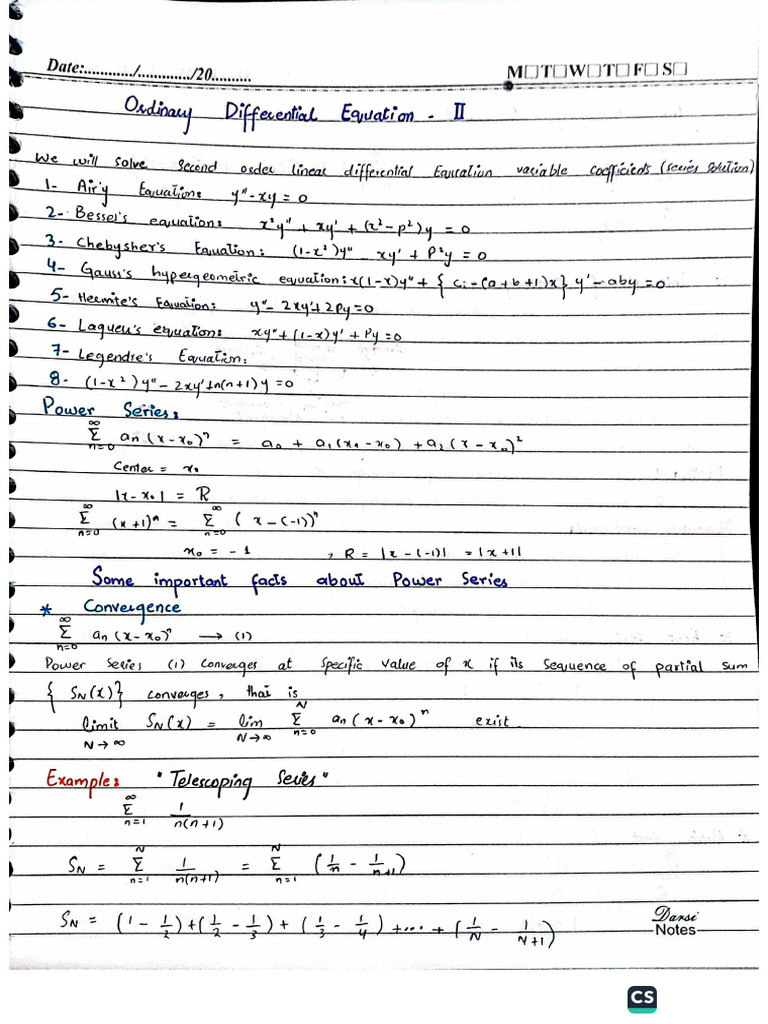 Date:............/............./20..........
M☐T☐W☐T☐F☐S☐
Ordinary Differential Equation - II
We will solve second order linear differential Equation variable coefficients (series solution)
1- Airy Equation: y'' - xy = 0
2- Bessel's equation: x²y'' + xy' + (x² - p²)y = 0
3- Chebysher's Equation: (1-x²)y'' - xy' + P²y = 0
4- Gauss's hypergeometric equation: x(1-x)y'' + { c - (a+b+1)x} y' - aby = 0
5- Hermite's Equation: y'' - 2xy' + 2Py = 0
6- Laguerr's equation: xy'' + (1-x)y' + Py = 0
7- Legendre's Equation:
8- (1-x²) y'' - 2xy' + n(n+1)y = 0
Power Series:
∞ Σ n=0 an (x-x₀)ⁿ = a₀ + a₁(x₀-x₀) + a₂(x-x₀)²
Center = x₀
|x-x₀| = R
∞ Σ n=0 (x+1)ⁿ = ∞ Σ n=0 (x-(-1))ⁿ
x₀ = -1 , R = |x-(-1)| = |x+1|
Some important facts about Power Series
* Convergence
∞ Σ n=0 an (x-x₀)ⁿ → (1)
Power Series (1) Converges at specific value of x if its sequence of partial sum
{ SN(x)} converges, that is
limit N→∞ SN(x) = lim N→∞ N Σ n=0 an (x-x₀)ⁿ exist
Example: "Telescoping Series"
∞ Σ n=1 1/n(n+1)
SN = N Σ n=1 1/n(n+1) = N Σ n=1 (1/n - 1/n+1)
SN = (1 - 1/2) + (1/2 - 1/3) + (1/3 - 1/4) + .... + (1/N - 1/N+1)
Darsi
Notes
CS